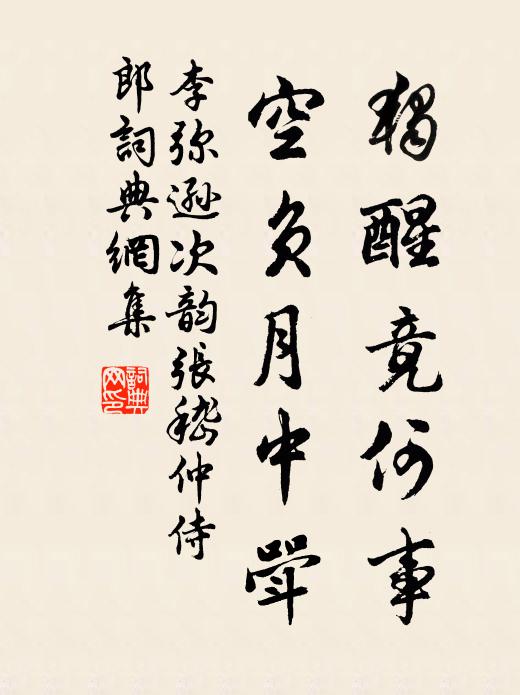 獨醒竟何事
空负月中斝
李弥遜次韵張嵇仲侍
郎詞典網集
詞典
网印